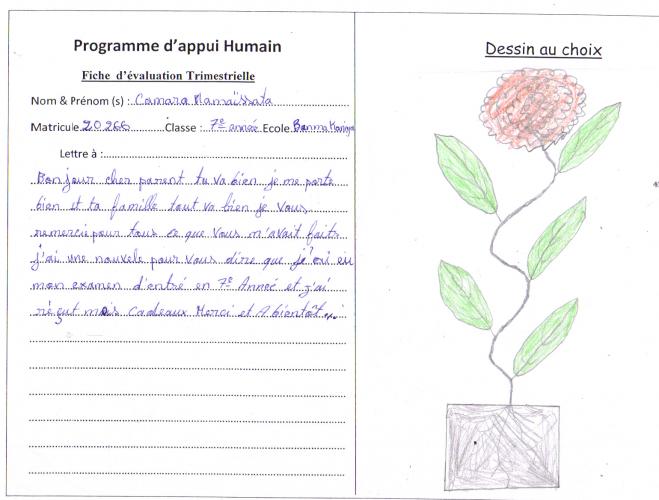 Programme d'appui Humain
Fiche d'évaluation Trimestrielle
Nom & Prénom (s) : Camara Mamaïssata
Matricule 20266 Classe : 7e année Ecole Banma
Lettre à :
Bonjour cher parent tu va bien je me porte
bien et ta famille tout va bien je vous
remerci pour tous ce que vous m'avait faits
j'ai une nouvele pour vous dire que j'ai eu
mon examen d'entré en 7e Année et j'ai
réçut mes cadeaux Merci et A bientôt...
Dessin au choix